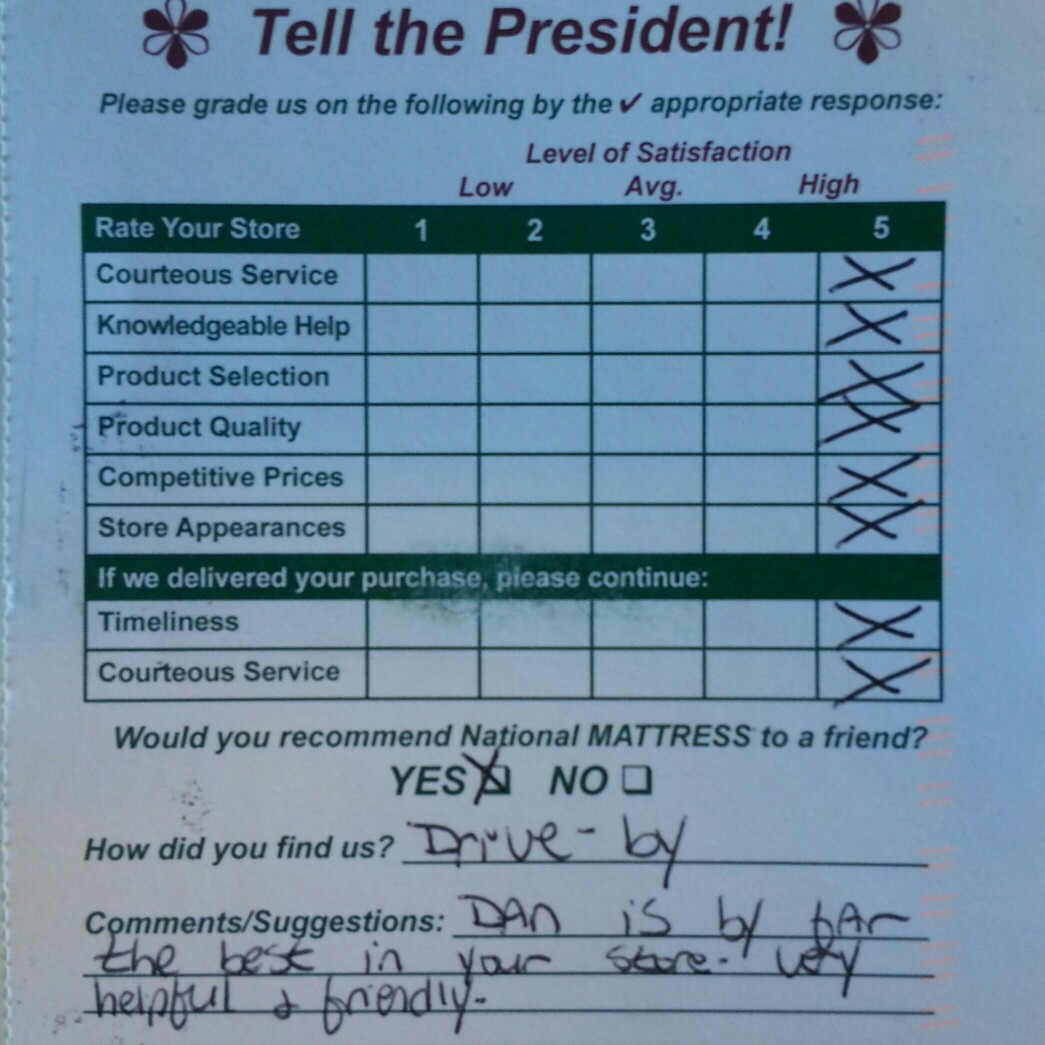 Tell the President!
Please grade us on the following by the ✓ appropriate response:
Level of Satisfaction
Low Avg. High
Rate Your Store 1 2 3 4 5
Courteous Service X
Knowledgeable Help X
Product Selection X
Product Quality X
Competitive Prices X
Store Appearances X
If we delivered your purchase, please continue:
Timeliness X
Courteous Service X
Would you recommend National MATTRESS to a friend?
YES X NO
How did you find us? Drive-by
Comments/Suggestions: DAn is by fAr
the best in your store. very
helpful & friendly.